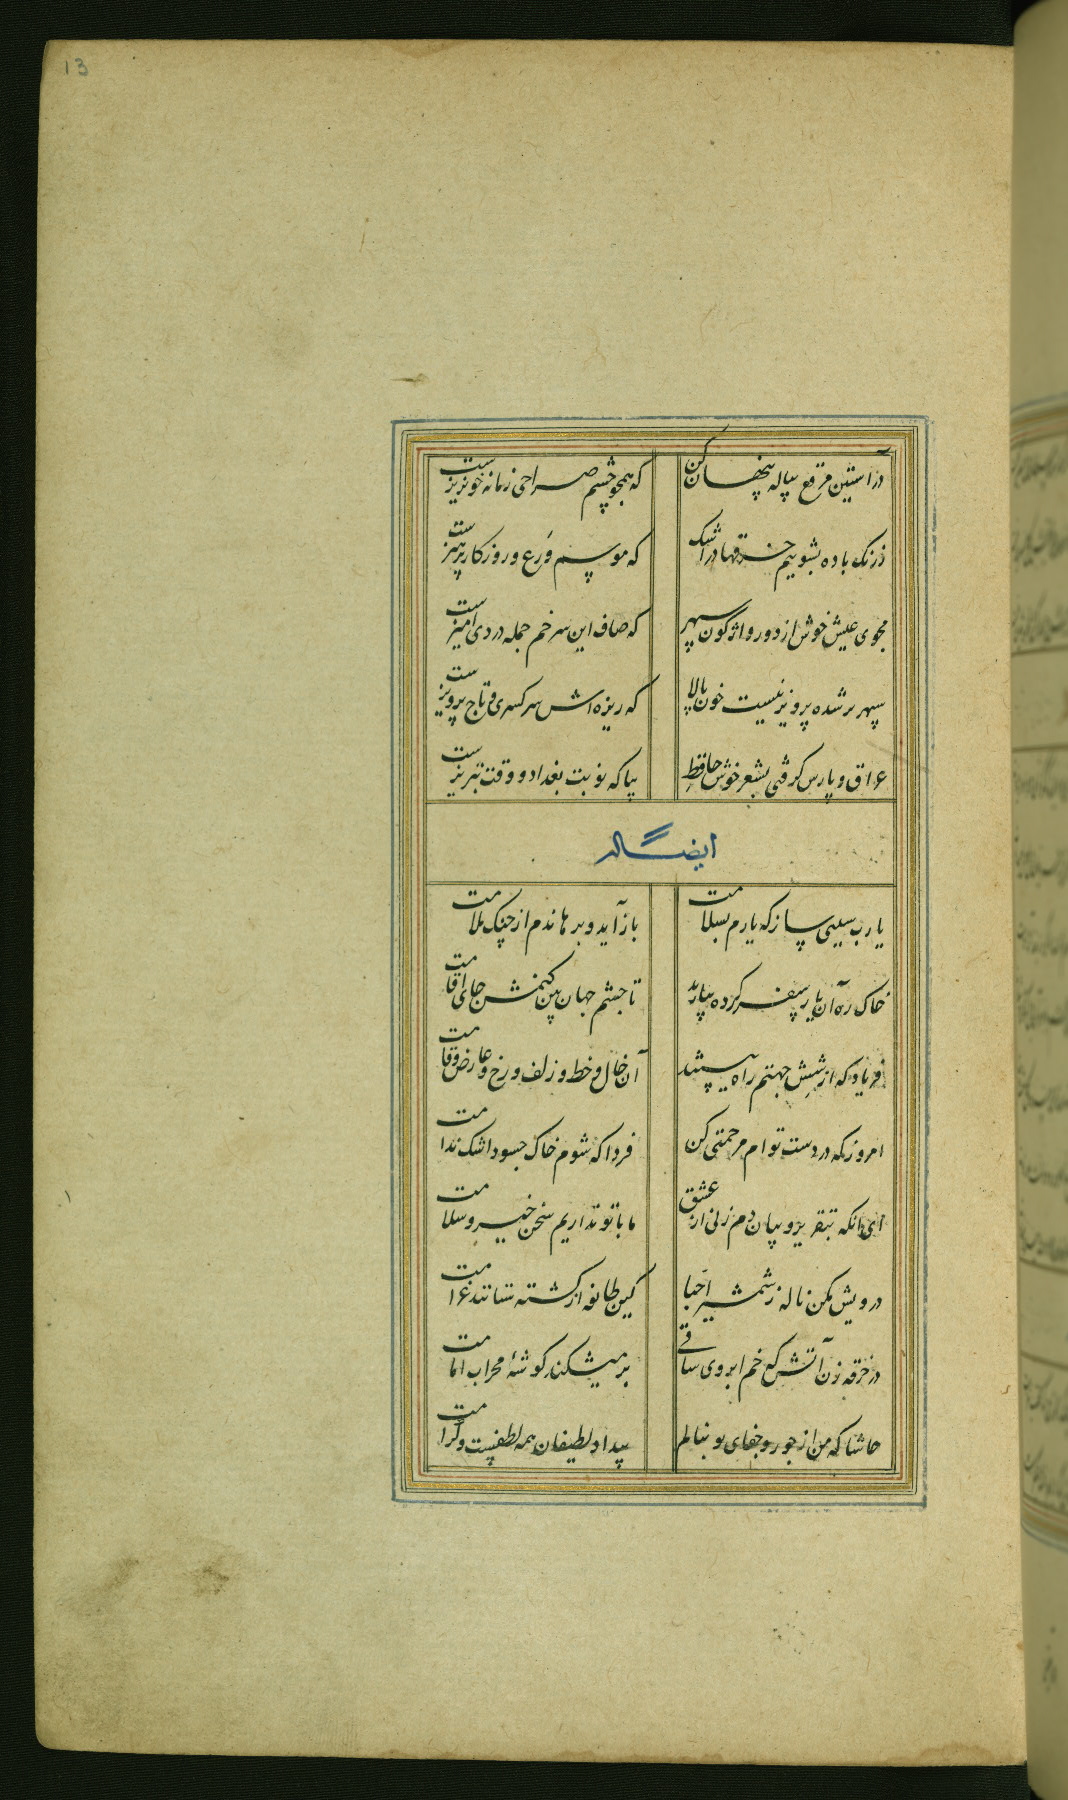 13
در آستین مرقع پیاله پنهان کن که همچو چشم صراحی زمانه خونریزست
ز رنک باده بشوییم خرقها در اشک که موسم ورع و روزکار پرهیزست
مجوی عیش خوش از دور واژکون سپهر که صاف این سر خم جمله دردی آمیزست
سپهر بر شده پرویزنیست خون پالا که ریزه اش سر کسری و تاج پرویزست
عراق و پارس کرفتی بشعر خوش حافظ بیا که نوبت بغداد و وقت تبریزست
ایضا له
یا رب سببی ساز که یارم بسلامت باز آید و برهاندم از چنک ملامت
خاک ره آن یار سفر کرده بیارید تا چشم جهان بین کنمش جای اقامت
فریاد که از شش جهتم راه ببستند آن خال و خط و زلف و رخ و عارض و قامت
امروز که در دست توام مرحمتی کن فردا که شوم خاک چه سود اشک ندامت
ای آنکه بتقریر و بیان دم زنی از عشق ما با تو نداریم سخن خیر و سلامت
درویش مکن ناله ز شمشیر احبا کین طایفه از کشته ستانند غرامت
در خرقه زن آتش که خم ابروی ساقی بر میشکند کوشهٔ محراب امامت
حاشا که من از جور و جفای تو بنالم بیداد لطیفان همه لطفست و کرامت